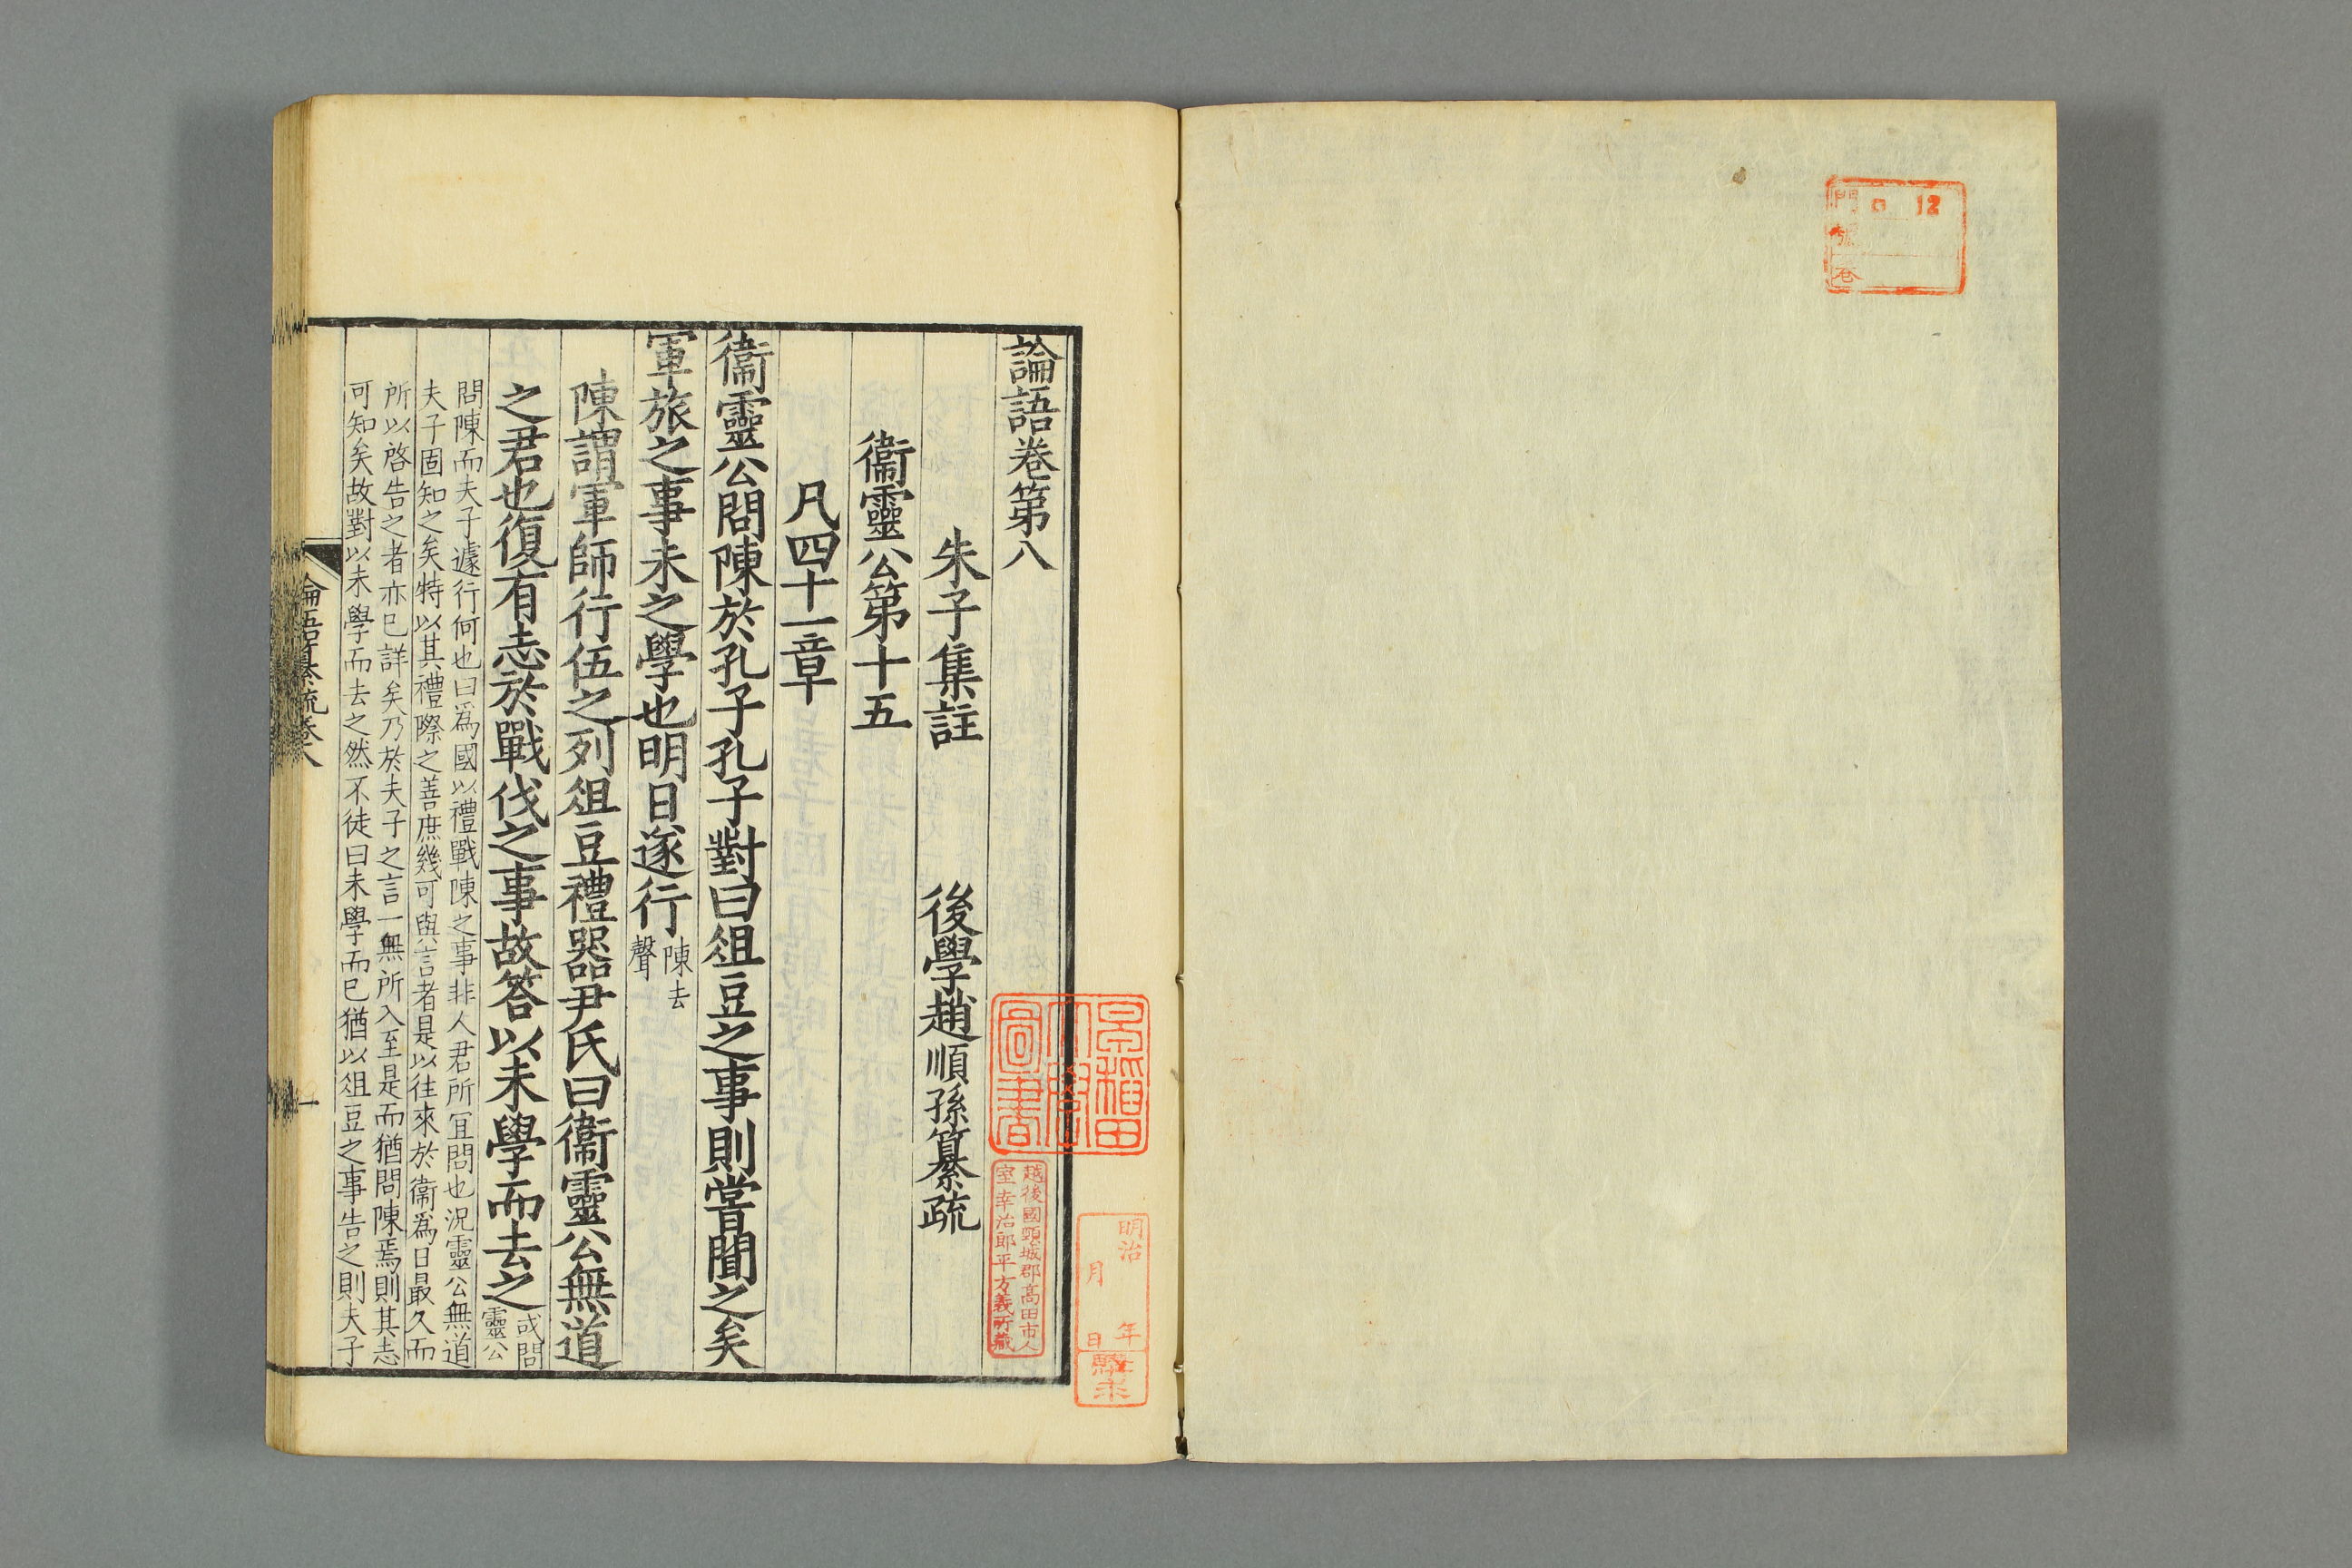 門 ロ 12
號
巻
論語卷第八
朱子集註 後學趙順孫纂疏
衞靈公第十五
凡四十一章
衞靈公問陳於孔子孔子對曰俎豆之事則嘗聞之矣
軍旅之事未之學也明日遂行陳去
聲
陳謂軍師行伍之列俎豆禮器尹氏曰衞靈公無道
之君也復有志於戰伐之事故答以未學而去之或問
靈公
問陳而夫子遽行何也曰爲國以禮戰陳之事非人君所宜問也況靈公無道
夫子固知之矣特以其禮際之善庶幾可與言者是以往來於衞爲日最久而
所以啓告之者亦已詳矣乃於夫子之言一無所入至是而猶問陳焉則其志
可知矣故對以未學而去之然不徒曰未學而已猶以俎豆之事告之則夫子
論語纂疏卷八
一
早稲田
大學
圖書
越後國頸城郡高田市人
室幸治郎平方義所藏
明治 年
月 日
購求